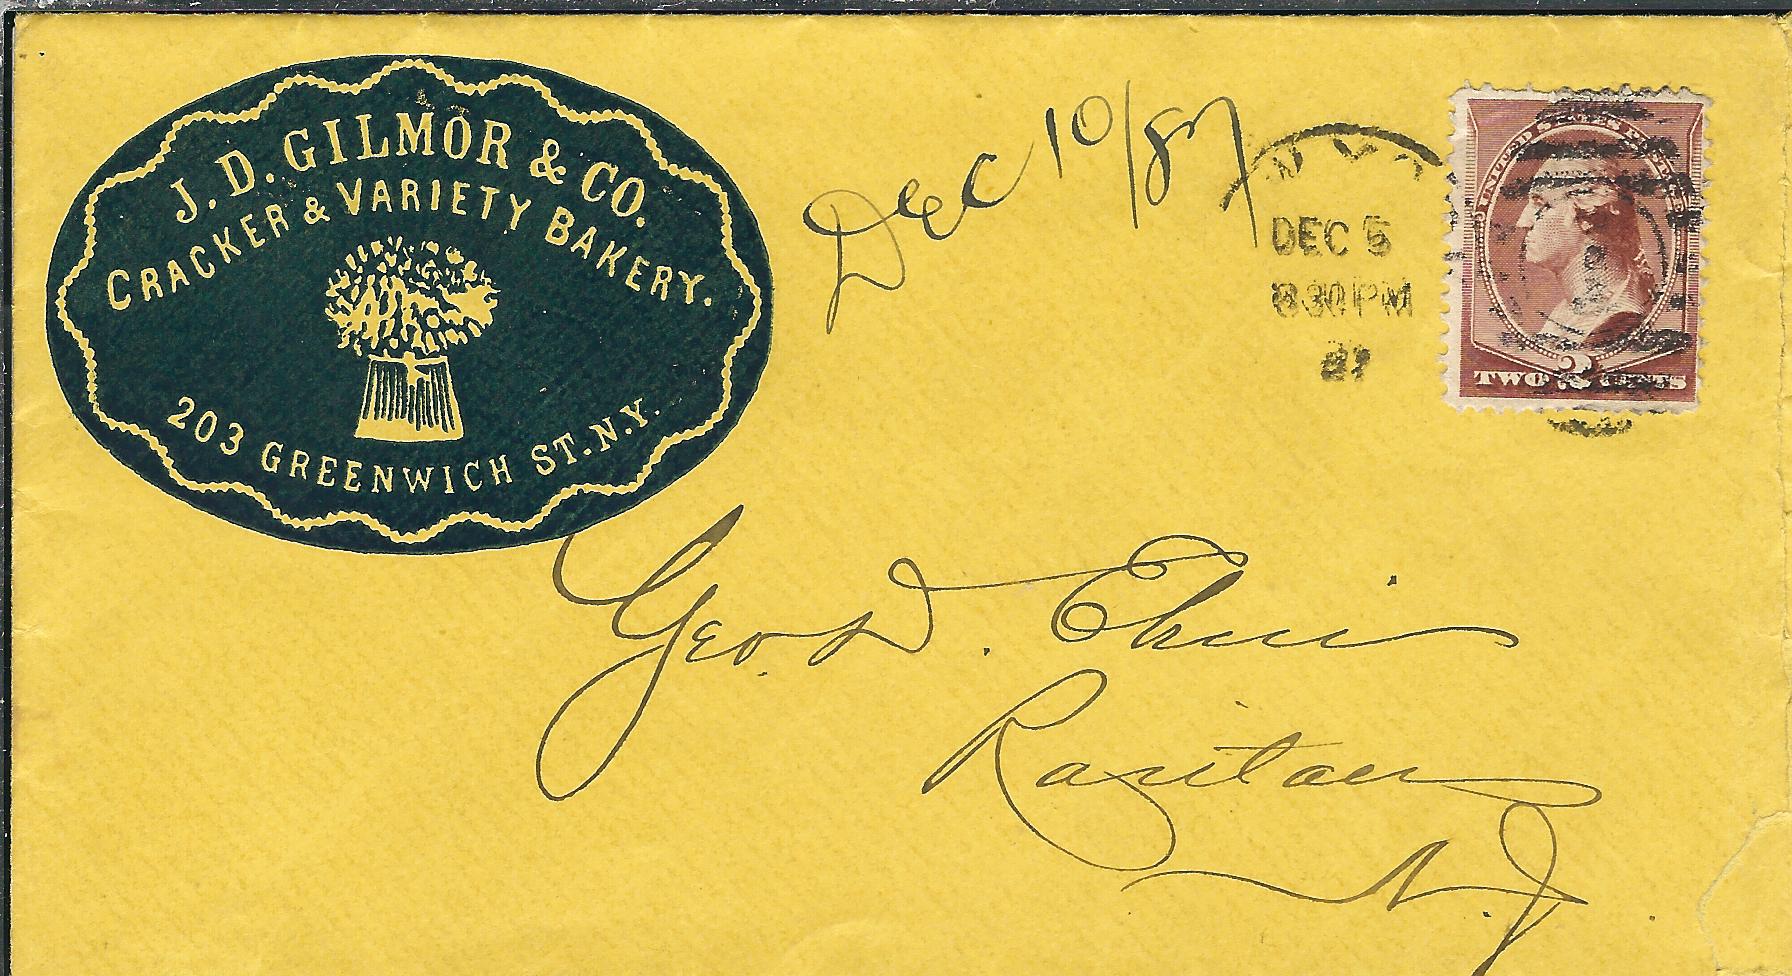 J. D. GILMOR & CO.
CRACKER & VARIETY BAKERY.
203 GREENWICH ST. N.Y.
Dec 10/87
DEC 5
830PM
87
UNITED STATES POSTAGE
TWO 2 CENTS
Geo. D.
Raritan
N.J.